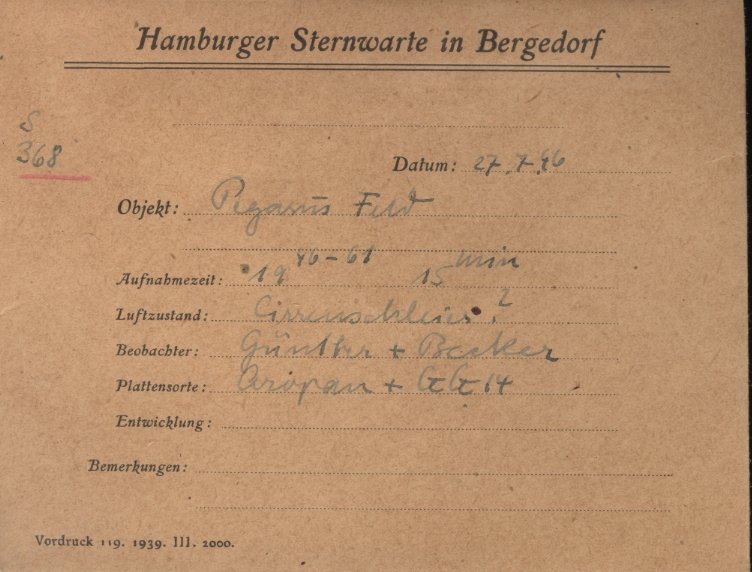 Hamburger Sternwarte in Bergedorf
S
368
Datum: 27.7.46
Objekt: Pegasus Feld
Aufnahmezeit: 19 46-61 15 min
Luftzustand: Cirrenschleier?
Beobachter: Günther + Becker
Plattensorte: + GG 14
Entwicklung:
Bemerkungen:
Vordruck 119. 1939. III. 2000.